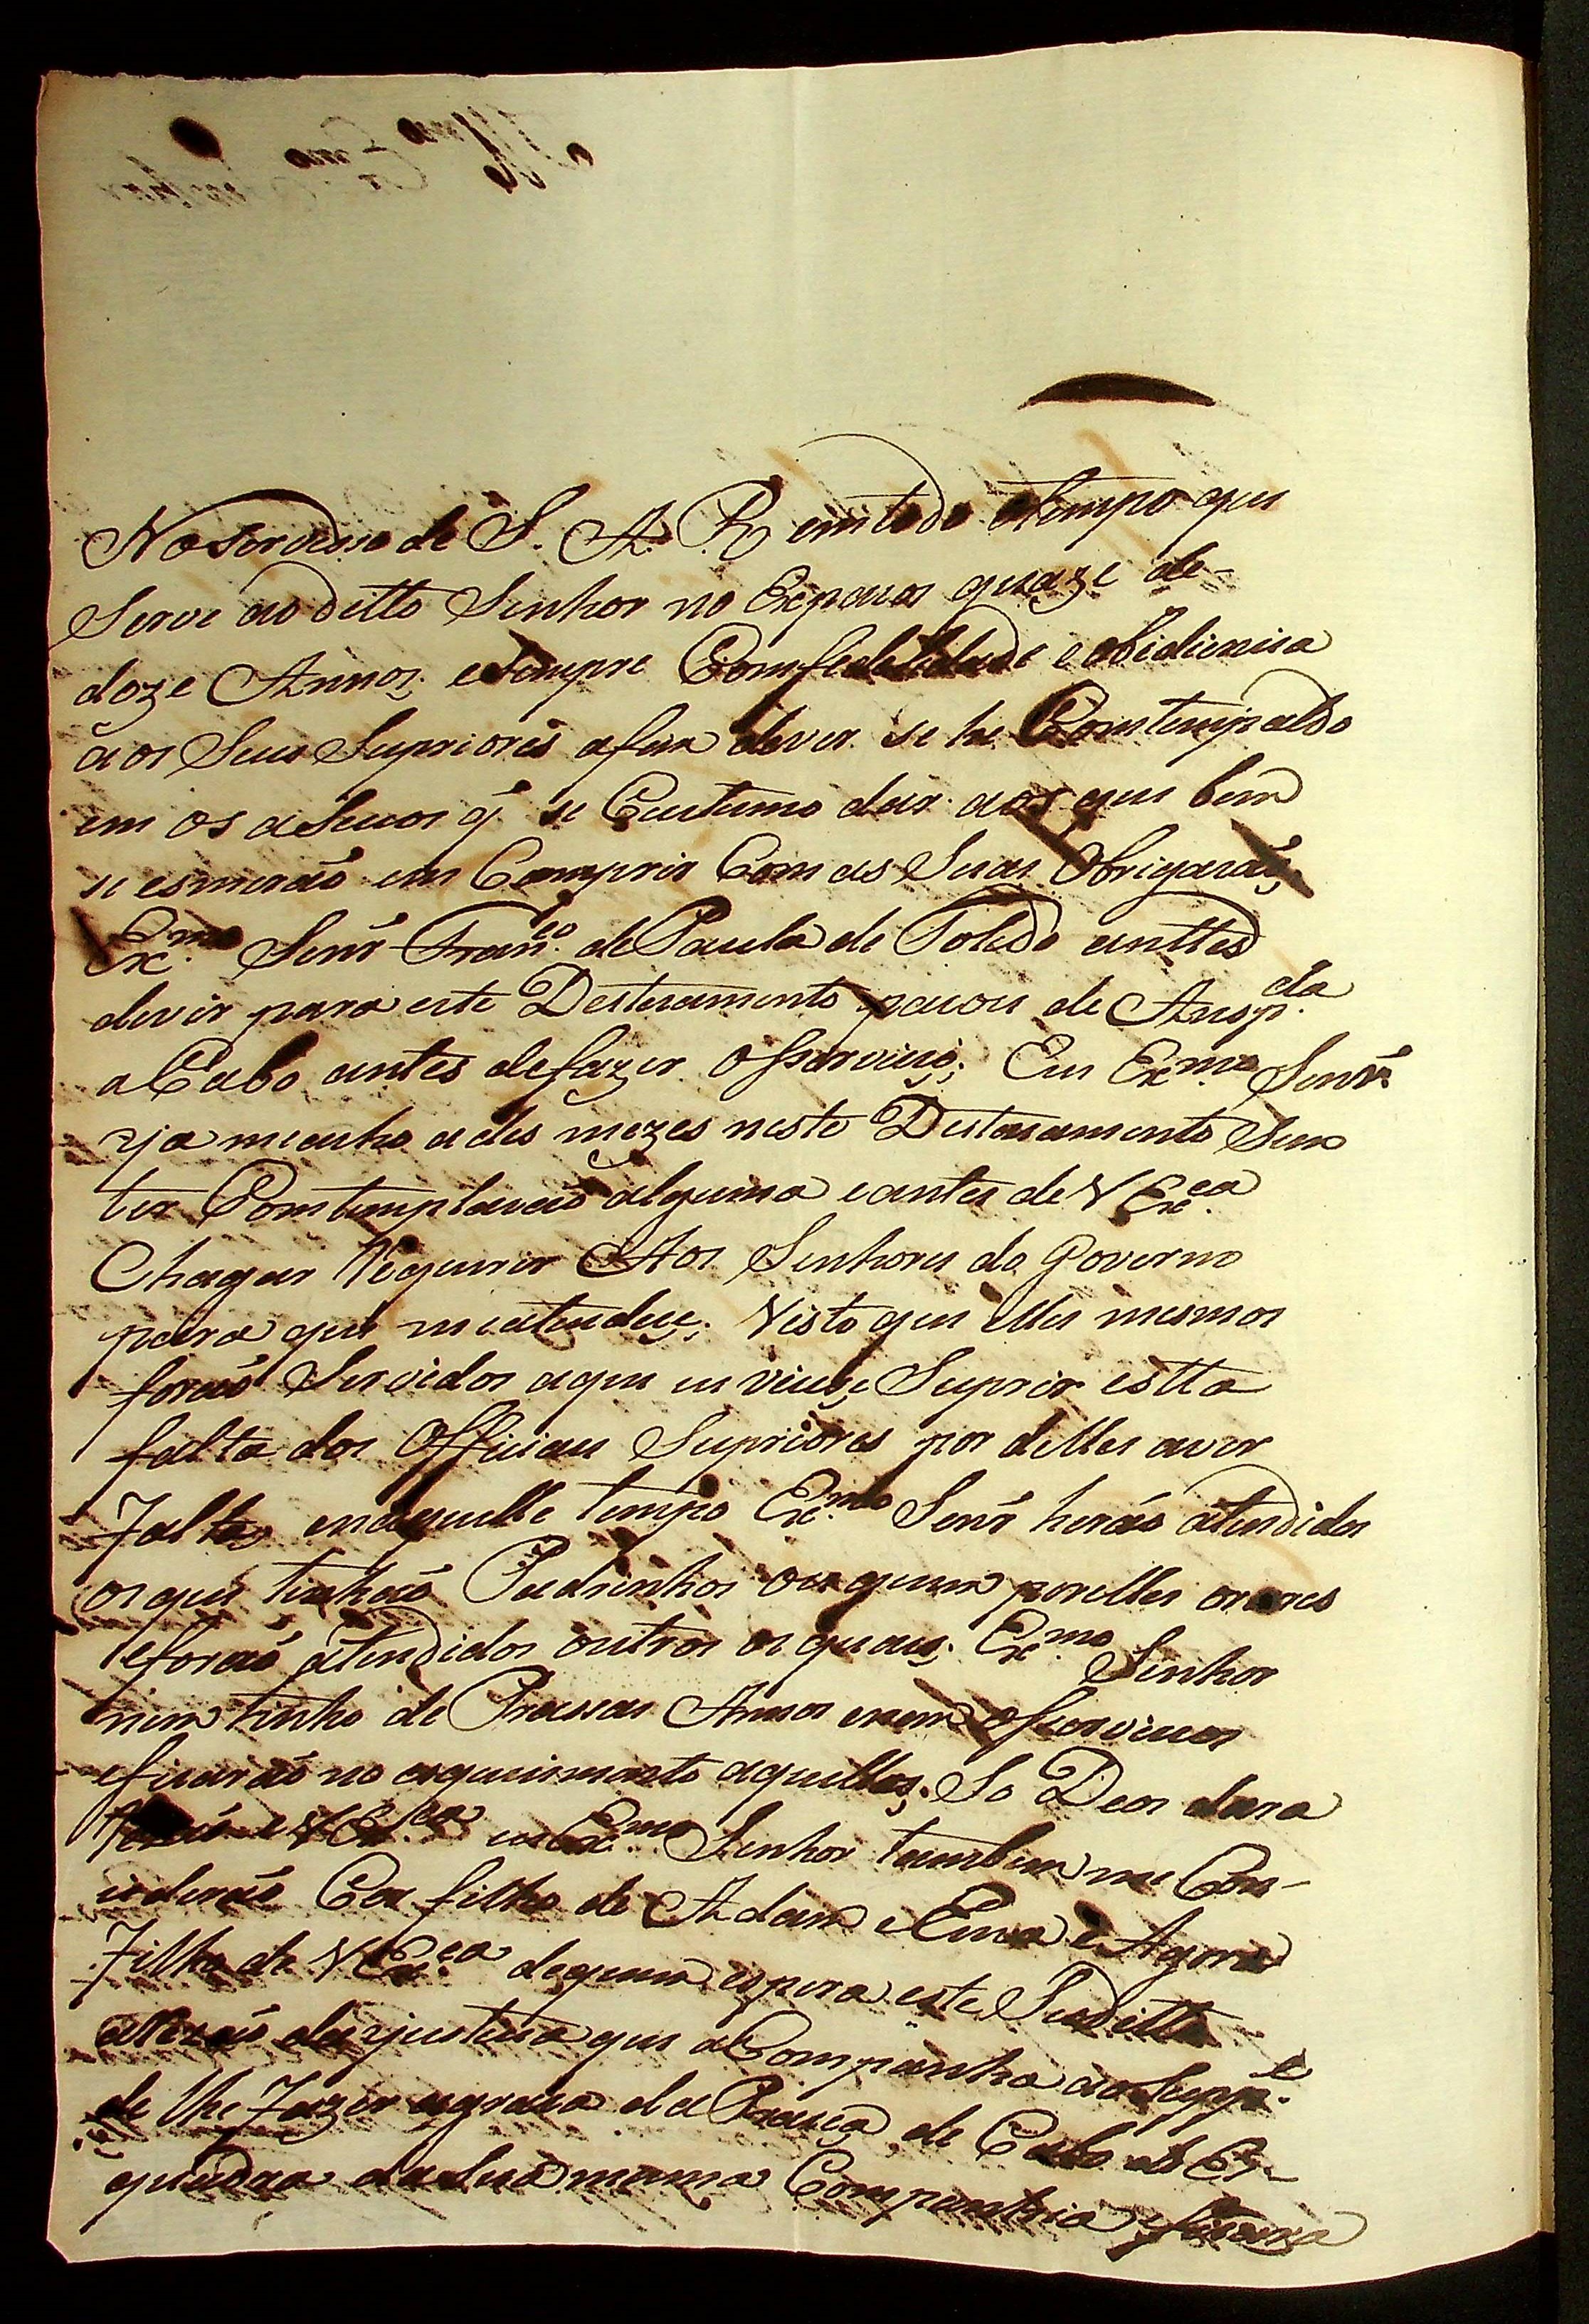 No servisso de S. A. R em todo otempo que
Serve ao ditto Senhor no Expaсo quaze de-
doze Annos, esempre Comfedelidade e obidiencia
aos Seus Supriores afim dever se he Comtempaldo
em os asecos q̃ se Custumo dar aos que bem
se esmeraõ em Comprir Com as Suas Obrigacoĩs,
Ex.mo Senr̃ Fran.co de Paula de Toledo anttes
devir para este Destacamento pacou de Ansp.da
a Cabo antes defazer osserviço; Eu Ex.mo Senr̃
ja meacho a des mezes neste Destacamento Sem
ter Comtemplacaõ alguma e antes de V Ex.ca
Chagar Requerer Aos Senhores do Governo
para que meatendece; Visto que elles mesmos
foraõ Servidos aque eu viece Suprir estta
falta dos Officiaes Supriores por delles aver
Falta, enaquelle tempo Ex.mo Senr̃ heraõ atendidos
os que tinhaõ Padrinhos ou quem porelles
eforaõ atendidos outros os quais, Ex.mo Senhor
nem tinho de Prassas Annos enem osservicos
eficaraõ no esquicimento aquelles, So Deos dara
e V Ex.ca eu Ex.mo Senhor tambem me Con-
cideraõ Co filho de Adam e Eva e Agora
Filho de V Ex.ca dequem espera este Suditto
da justica que aCompanha ao Supp.e
de lhe Fazer agraca da Praça de Cabo de Es-
quadra da Sua mesma Companhia